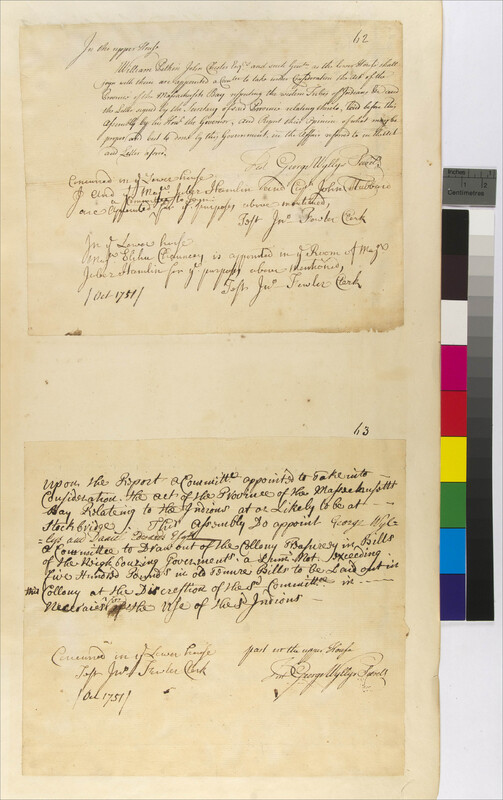 62
In the upper House
William Pitkin John Chester Esqrs and such Gentn as the lower House shall
joyn with them are appointed a Comtee to take under Consideration the Act of the
Province of the Massachusetts Bay respecting the western Tribes of Indians &c and
the Letter signed by the Secretary of said Province relating thereto, laid before this
Assembly by his Honr the Governor, and Report their Opinion of what may be
proper to be done by this Government, in the Affair referred to in the Act
and Letter aforesd.
Test George Wyllys Secretr
Concurred in ye Lower house
& and Majr Jabez Hamlin and Capt John Hubbard
are appointed a Committee to joyn for ye purposes above mentioned,
Test Jno Fowler Clerk
In ye Lower house
Majr Elihu Chauncey is appointed in ye Room of Majr
Jabez Hamlin for ye purposes above mentioned,
Test Jno Fowler Clerk
/Oct 1751/
63
Upon the Report a Committee appointed to Take into
Consideration the act of the Province of the Massachusetts
Bay Relating to the Indians at or Likely to be at
Stockbridge. This Assembly Do appoint George Wyl-
lys and Daniel Edwards Esqrs
a Committee to Draw out of the Colony Treasury in Bills
of the Neighbouring Goverments a Sum Not Exceeding
five Hundred Pounds in old Tenure Bills to be Laid out in
this Colony at the Discretion of the sd Committee in
Necessaries for the Use of the sd Indians
Concurred in ye Lower house
Test Jno Fowler Clerk
/Oct 1751/
past in the upper House
Test George Wyllys Secretr
Inches
Centimetres